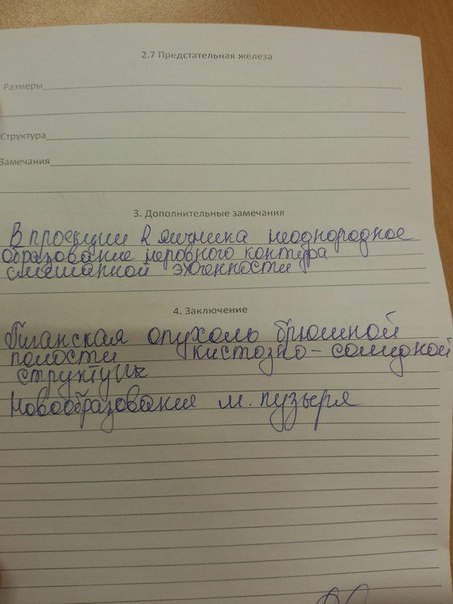 2.7 Предстательная железа
Размеры
Структура
Замечания
3. Дополнительные замечания
В проекции R яичника неоднородное
образование неровного контура
смешанной эхогенности
4. Заключение
Гиганская опухоль брюшной
полости кистозно-солидной
структуры
Новообразования м. пузыря